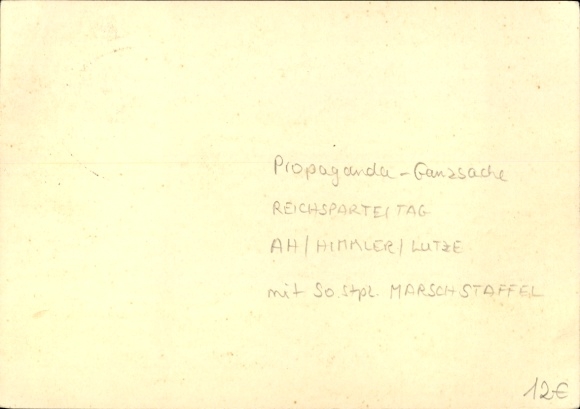 Propaganda - Ganzsache
REICHSPARTEITAG
AH/HIMMLER/LUTZE
mit So.Stpl. MARSCHSTAFFEL
12€